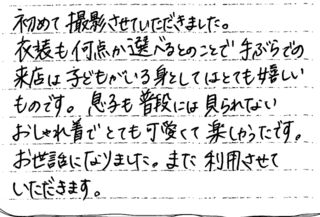 初めて撮影させていただきました。
衣装も何点か選べるとのことで手ぶらでの
来店は子どもがいる身としてはとても嬉しい
ものです。息子も普段には見られない
おしゃれ着でとても可愛くて楽しかったです。
お世話になりました。また利用させて
いただきます。